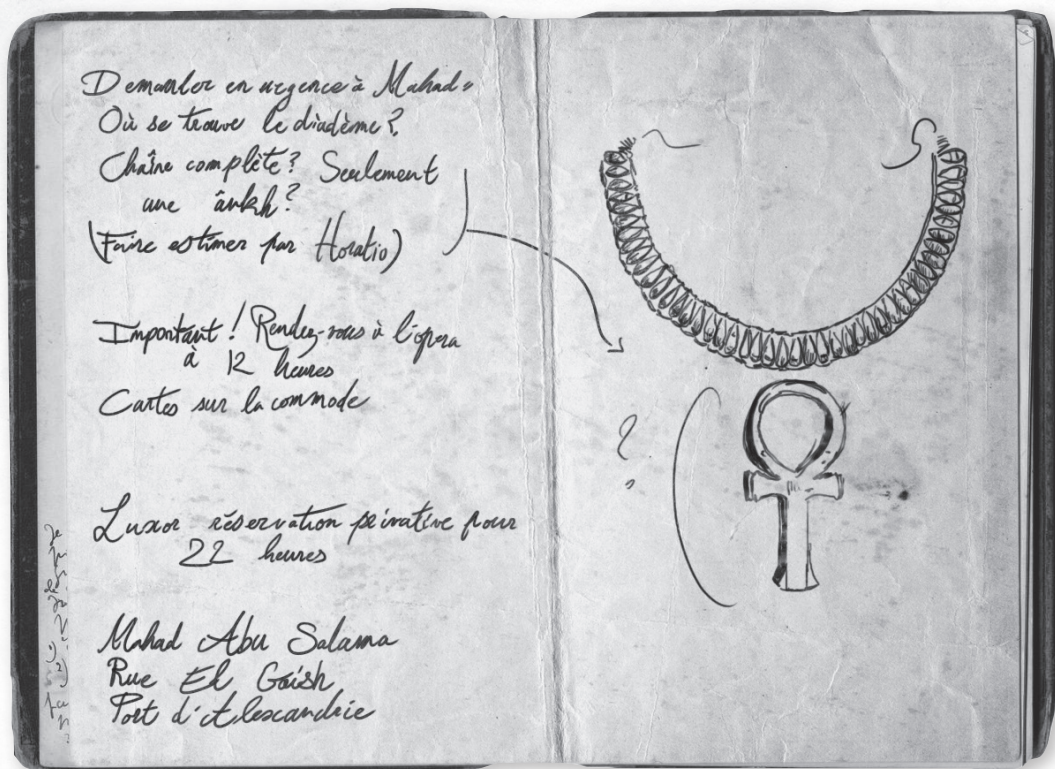 Demander en urgence à Mahad"
Où se trouve le diadème?
Chaîne complète? Seulement
une ânkh?
(Faire estimer par Horatio)
Important! Rendez-vous à l'opera
à 12 heures
Cartes sur la commode
Luxor réservation privative pour
22 heures
Mahad Abu Salama
Rue El Gaish
Port d'Alexandrie
?